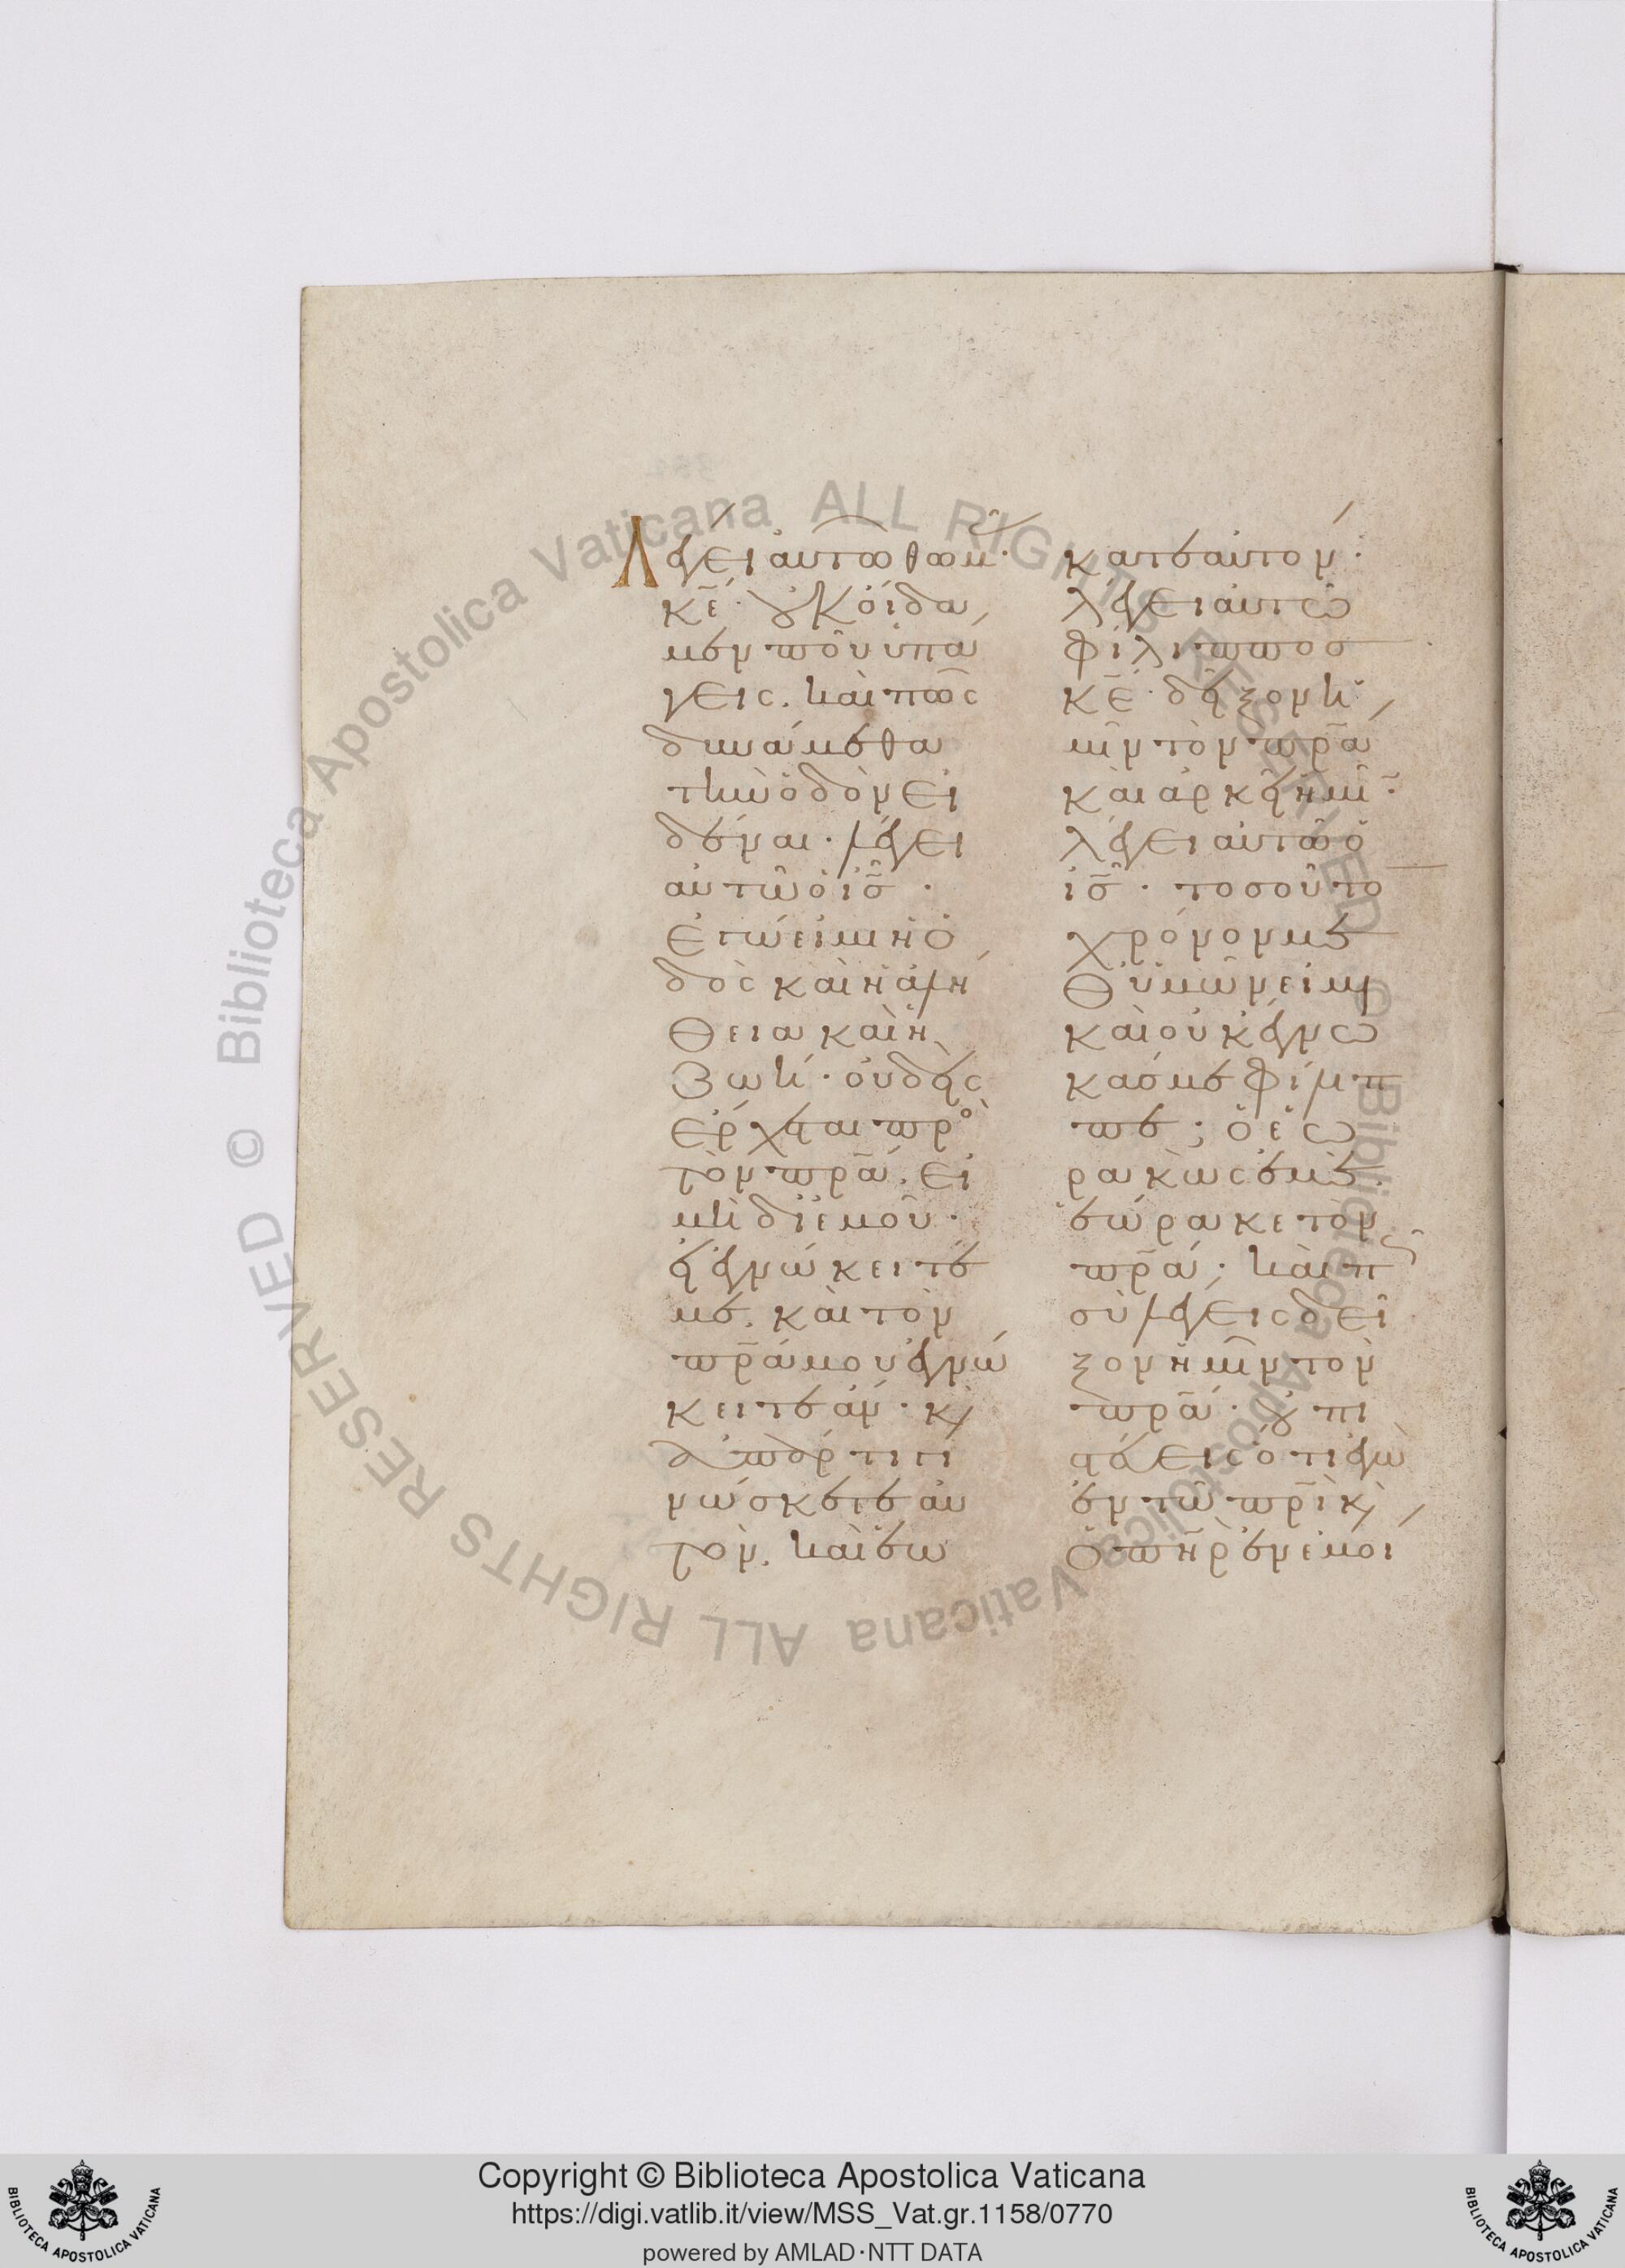 Λέγει αὐτῶ θωμᾶς·
κ̅ε̅· οὐκ οἴδα
μεν ποῦ ὑπά
γεις. καὶ πῶς
δυνάμεθα
τὴν ὁδὸν εἰ
δέναι· λέγει
αὐτῶ ὁ ι̅σ̅·
Ἐγώ εἰμι ἡ ὁ
δὸς καὶ ἡ ἀλή
θεια καὶ ἡ
ζωή· οὐδεὶς
ἔρχεται πρὸς
τὸν π̅ρ̅α̅. εἰ
μὴ δι' ἐμοῦ·
εἰ ἐγνώκειτέ
με. καὶ τὸν
π̅ρ̅α̅ μου ἐγνώ
κειτε ἄν· κ(αὶ)
ἀπάρτι γι
νώσκετε αὐ
τόν. καὶ ἑω
ράκατε αὐτόν·
λέγει αὐτῶ
Φίλιππος
κ̅ε̅· δεῖξον ἡ
μῖν τὸν π̅ρ̅α̅
καὶ ἀρκεῖ ἡμῖν·
λέγει αὐτῶ ὁ
ι̅σ̅· τοσοῦτο
χρόνον με
θ' ὑμῶν εἰμι
καὶ οὐκ ἔγνω
κάς με Φίλιπ
πε; ὁ ἑω
ρακὼς ἐμὲ.
ἑώρακε τὸν
π̅ρ̅α̅; καὶ πῶς
σὺ λέγεις δεῖ
ξον ἡμῖν τὸν
π̅ρ̅α̅· οὐ πι
στεύεις ὅτι ἐγὼ
ἐν τῶ π̅ρ̅ι̅ κ(αὶ)
ὁ π̅η̅ρ̅ ἐν ἐμοί
Copyright © Biblioteca Apostolica Vaticana
https://digi.vatlib.it/view/MSS_Vat.gr.1158/0770
powered by AMLAD·NTT DATA
BIBLIOTECA APOSTOLICA VATICANA
BIBLIOTECA APOSTOLICA VATICANA
© Biblioteca Apostolica Vaticana ALL RIGHTS RESERVED © Biblioteca Apostolica Vaticana ALL RIGHTS RESERVED